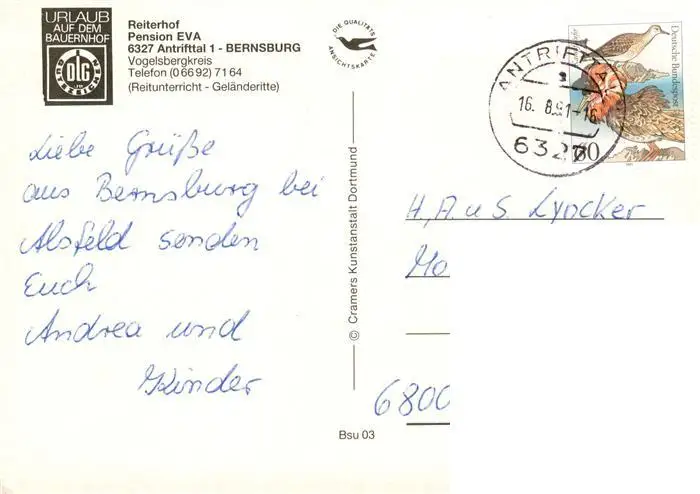 URLAUB
AUF DEM
BAUERNHOF
DLG
Reiterhof
Pension EVA
6327 Antrifttal 1 - BERNSBURG
Vogelsbergkreis
Telefon (0 66 92) 71 64
(Reitunterricht - Geländeritte)
DIE QUALITÄTS
ANSICHTSKARTE
Deutsche Bundespost
60
ANTRIFTTA
16. 8. 91-16
6327
Liebe Grüße
aus Bernsburg bei
Alsfeld senden
Euch
Andrea und
Kinder
© Cramers Kunstanstalt Dortmund
H. A. u S. Lyncker
Mo
6800
Bsu 03